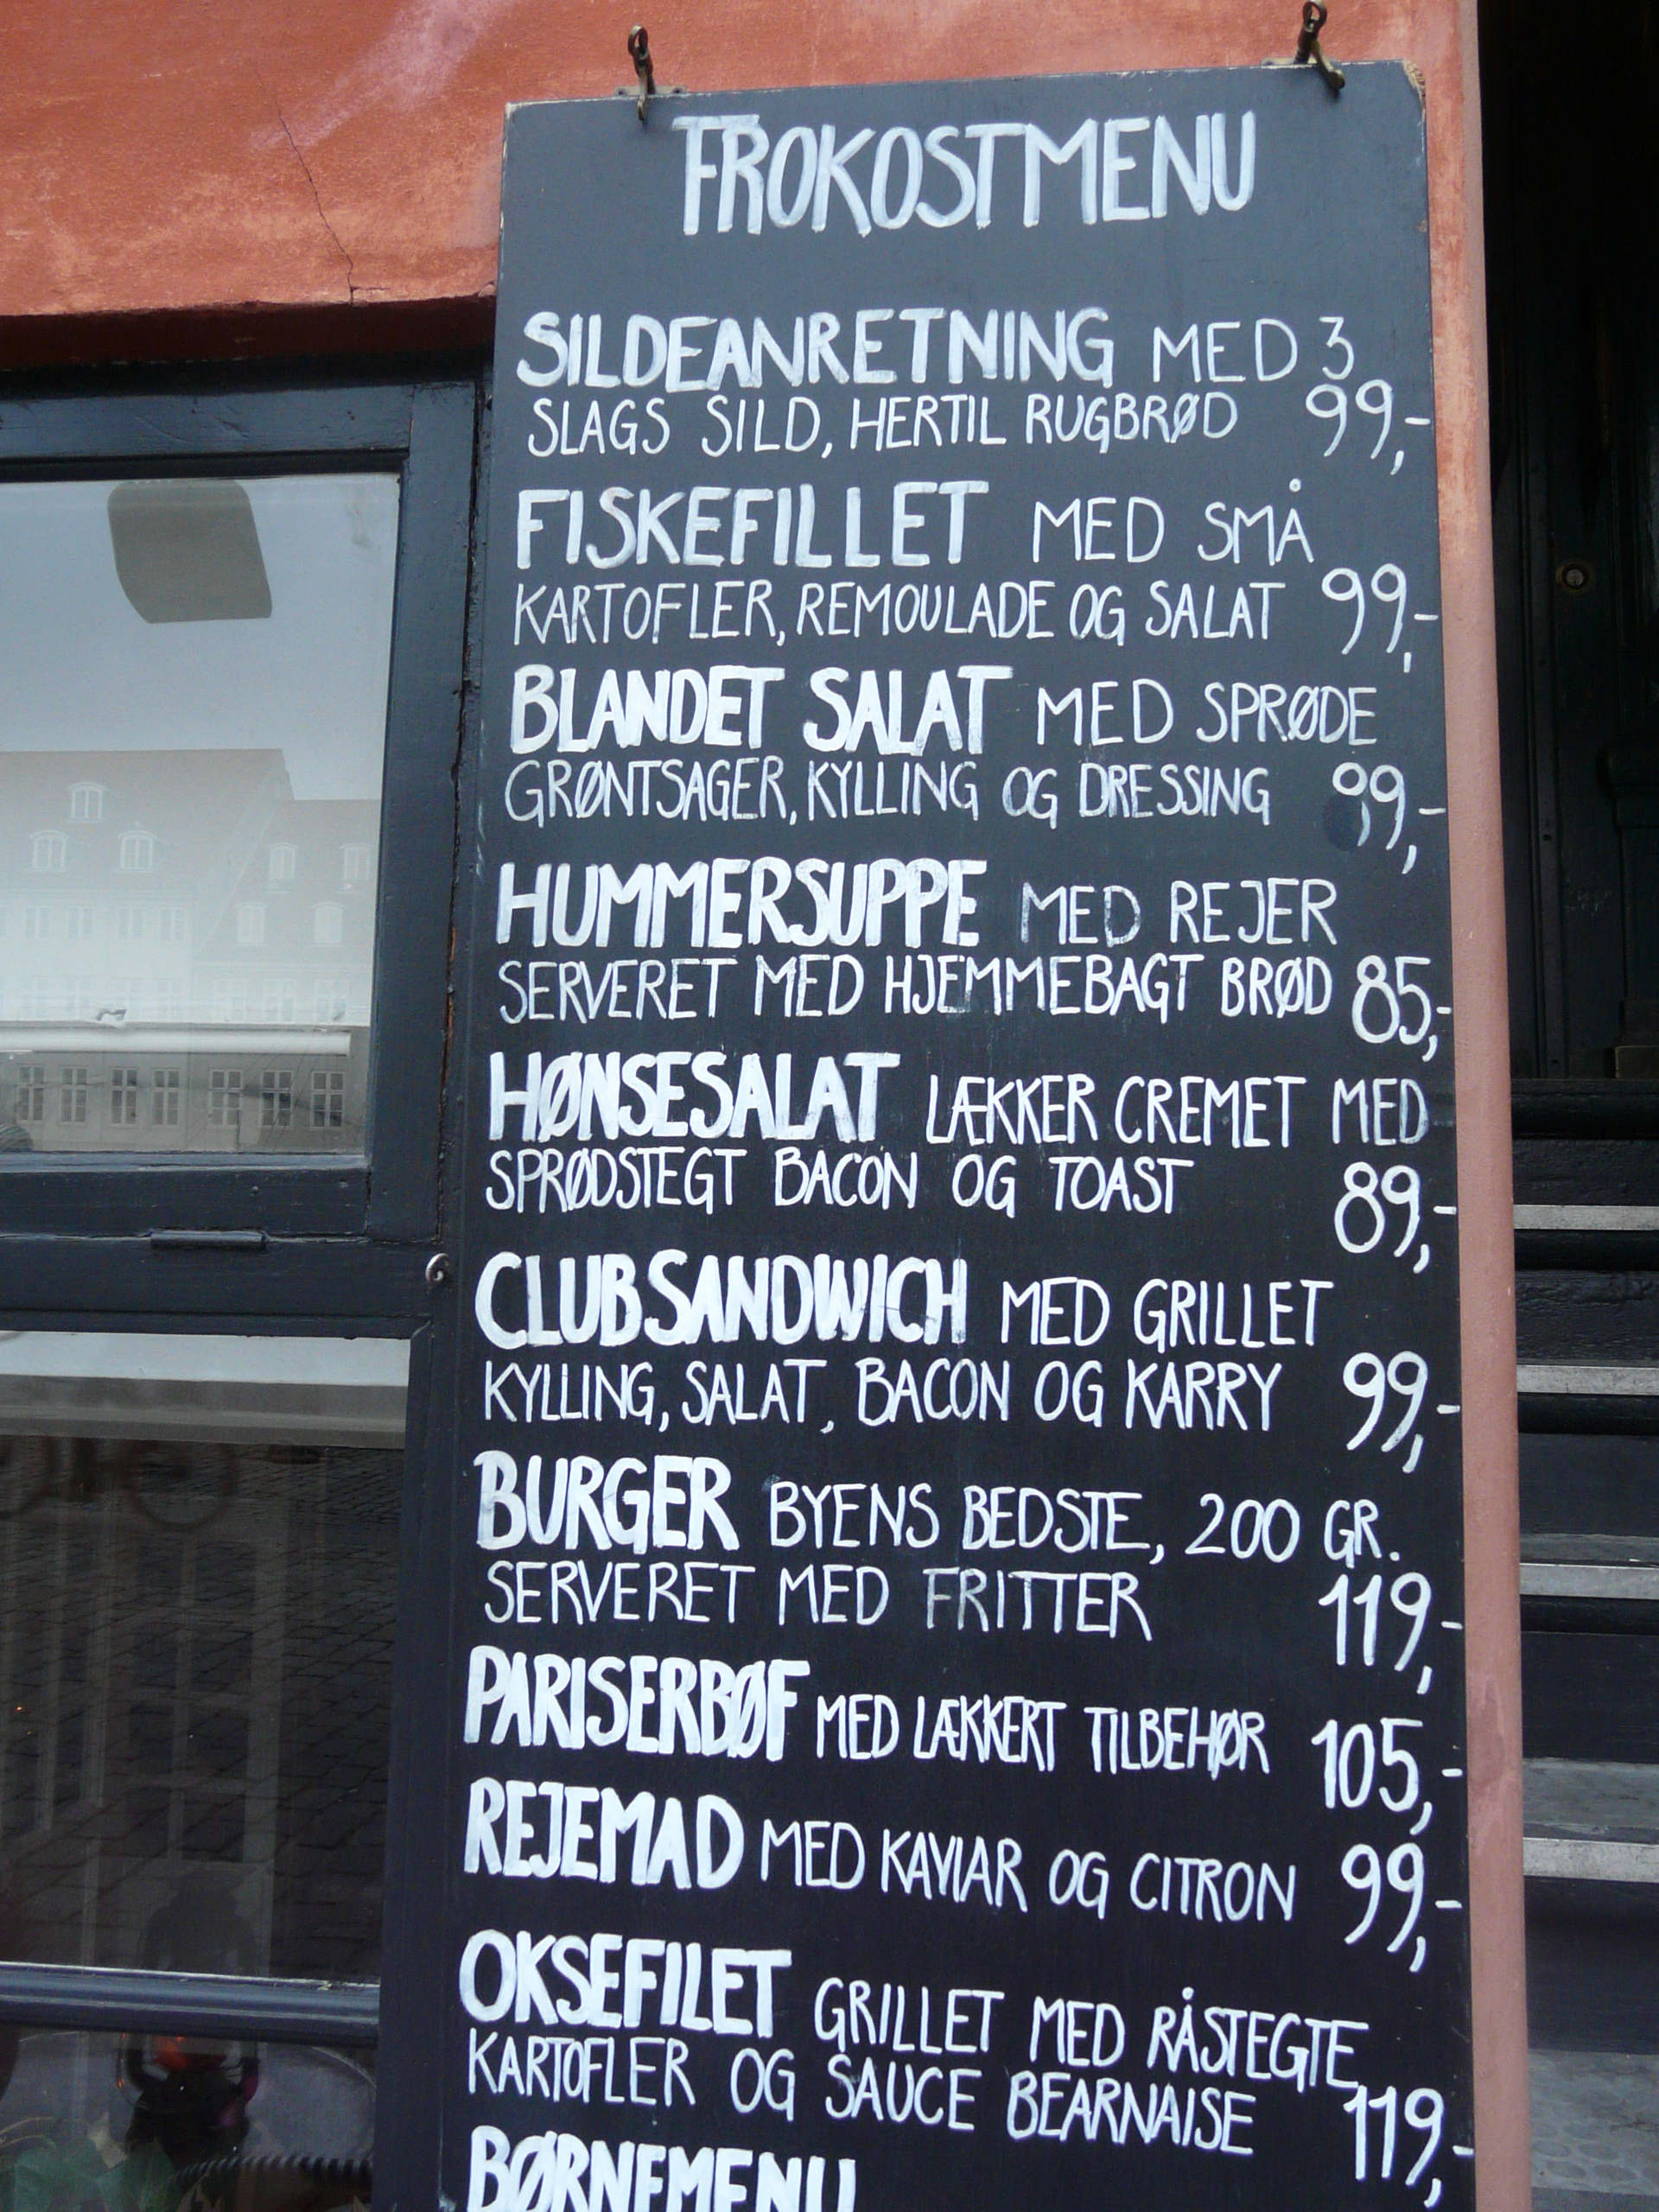 FROKOSTMENU
SILDEANRETNING MED 3
SLAGS SILD, HERTIL RUGBRØD 99,-
FISKEFILLET MED SMÅ
KARTOFLER, REMOULADE OG SALAT 99,-
BLANDET SALAT MED SPRØDE
GRØNTSAGER, KYLLING OG DRESSING 99,-
HUMMERSUPPE MED REJER
SERVERET MED HJEMMEBAGT BRØD 85,-
HØNSESALAT LÆKKER CREMET MED
SPRØDSTEGT BACON OG TOAST 89,-
CLUBSANDWICH MED GRILLET
KYLLING, SALAT, BACON OG KARRY 99,-
BURGER BYENS BEDSTE, 200 GR.
SERVERET MED FRITTER 119,-
PARISERBØF MED LÆKKERT TILBEHØR 105,-
REJEMAD MED KAVIAR OG CITRON 99,-
OKSEFILET GRILLET MED RÅSTEGTE
KARTOFLER OG SAUCE BEARNAISE 119,-
BØRNEMENU